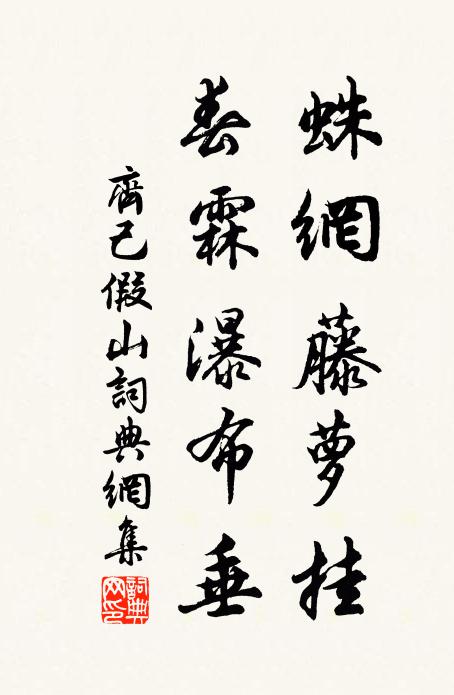 蛛網藤萝挂
春霖瀑布垂
齊己假山詞典網集
詞典网印